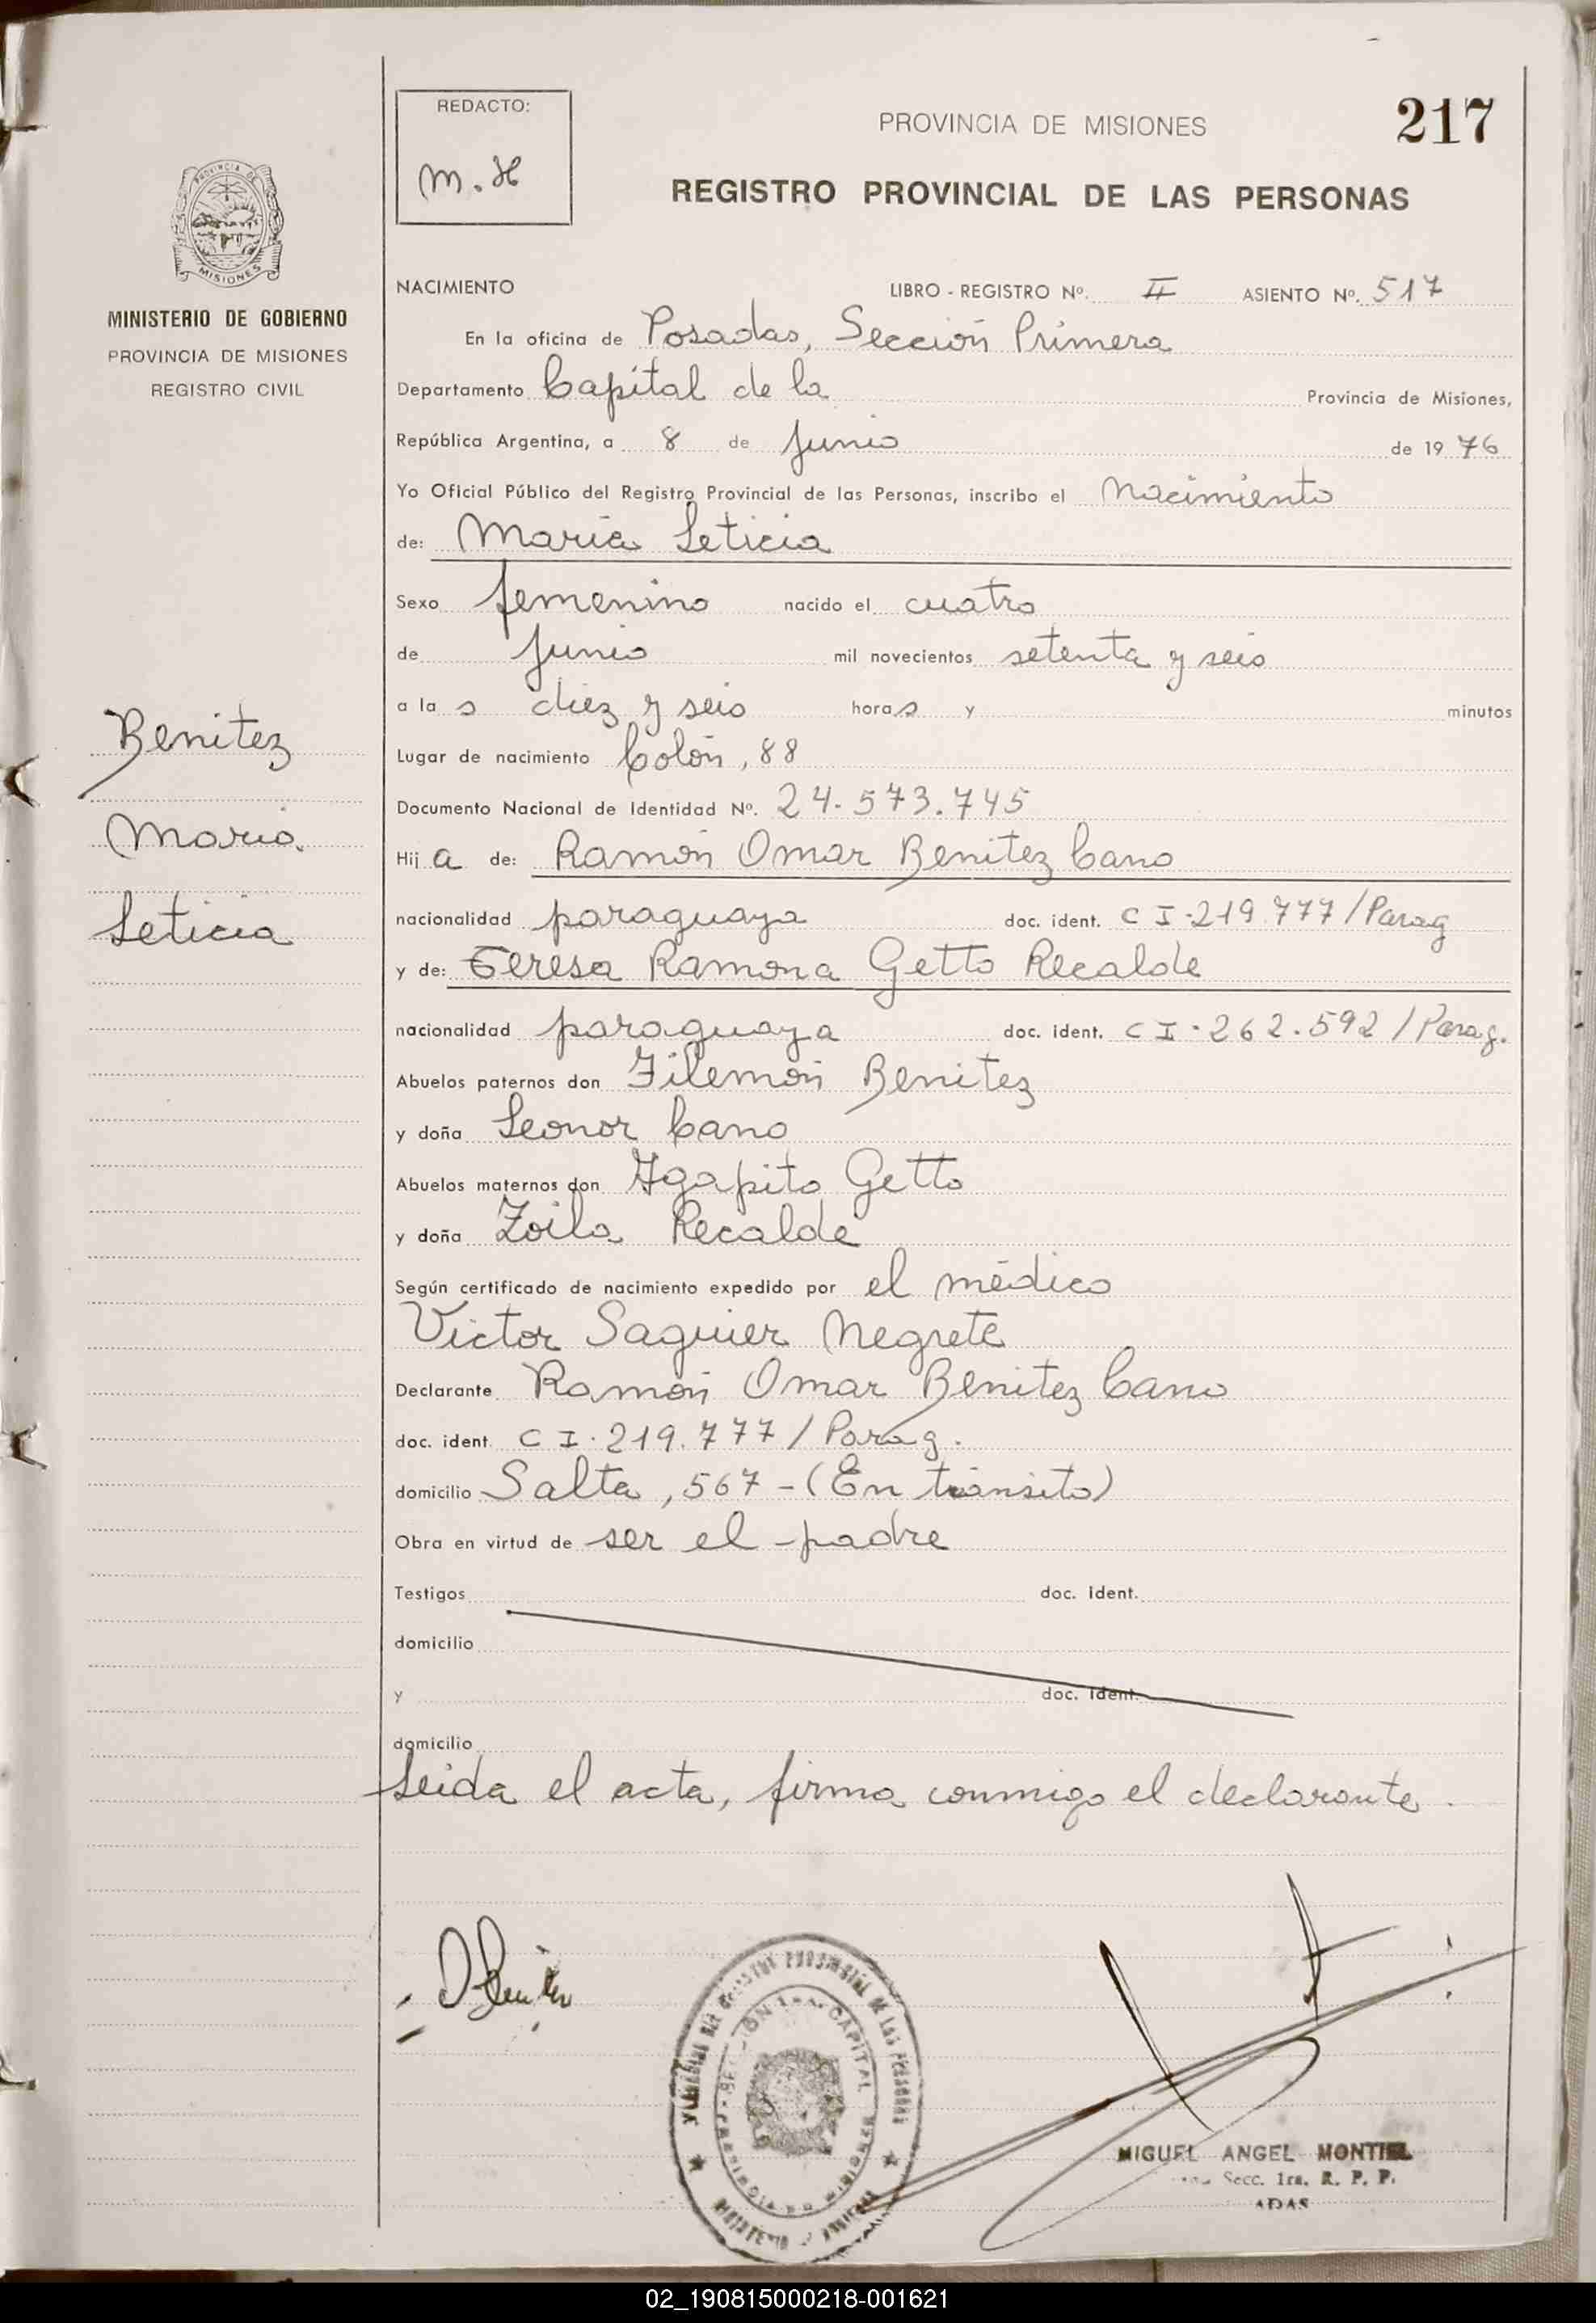 REDACTO:
M. H
PROVINCIA DE MISIONES
217
REGISTRO PROVINCIAL DE LAS PERSONAS
PROVINCIA DE
MISIONES
MINISTERIO DE GOBIERNO
PROVINCIA DE MISIONES
REGISTRO CIVIL
Benitez
Maria
Leticia
NACIMIENTO LIBRO - REGISTRO Nº. II ASIENTO Nº. 517
En la oficina de Posadas, Sección Primera
Departamento Capital de la Provincia de Misiones,
República Argentina, a 8 de Junio de 1976
Yo Oficial Público del Registro Provincial de las Personas, inscribo el Nacimiento
de: María Leticia
Sexo femenino nacido el cuatro
de Junio mil novecientos setenta y seis
a la s diez y seis horas y minutos
Lugar de nacimiento Colón, 88
Documento Nacional de Identidad Nº. 24.573.745
Hija de: Ramón Omar Benitez Cano
nacionalidad paraguaya doc. ident. C I.219.777/Parag
y de: Teresa Ramona Getto Recalde
nacionalidad paraguaya doc. ident. C I.262.592/Parag.
Abuelos paternos don Filemón Benitez
y doña Leonor Cano
Abuelos maternos don Agapito Getto
y doña Zoila Recalde
Según certificado de nacimiento expedido por el médico
Victor Saguier Negrete
Declarante Ramón Omar Benitez Cano
doc. ident. C I.219.777/Parag.
domicilio Salta, 567 - (En tránsito)
Obra en virtud de ser el padre
Testigos doc. ident.
domicilio
y doc. ident.
domicilio
Leida el acta, firma conmigo el declarante.
MIGUEL ANGEL MONTIEL
Secc. 1ra. R. P. P.
ADAS
02_190815000218-001621